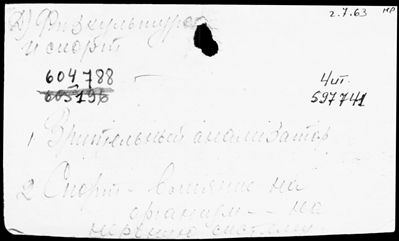 2.7.63 нр
2) Физкультура
и спорт
604788
605196
Чит.
597741
1 Зрительный анализатор
2 Спорт - влияние на
организм - на
нервную систему